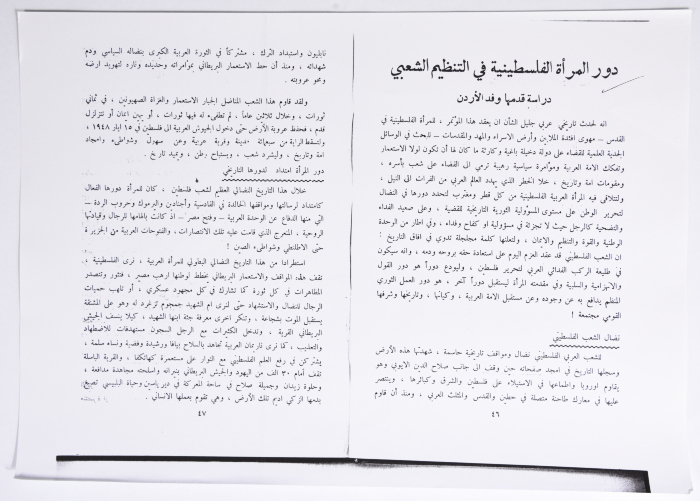 دور المرأة الفلسطينية في التنظيم الشعبي
دراسة قدمها وفد الأردن
انه لحدث تاريخي عربي جليل الشأن ان يعقد هذا المؤتمر ، للمرأة الفلسطينية في
القدس – مهوى افئدة الملايين وأرض الاسراء والمهد والمقدسات – للبحث في الوسائل
الجدية العلمية للقضاء على دولة دخيلة باغية وكارثة ما كان لها أن تكون لولا الاستعمار
وتفكك الامة العربية ومؤامرة سياسية رهيبة ترمي الى القضاء على شعب بأسره ،
ومقومات امة وتاريخ ، خلا الخطر الذي يهدد العالم العربي من الفرات الى النيل ،
ولتتلاقى فيه المرأة العربية الفلسطينية من كل قطر ومغترب لتحدد دورها في النضال
لتحرير الوطن على مستوى المسؤولية الثورية التاريخية للقضية ، وعلى صعيد الفداء
والتضحية كالرجل حيث لا تجزئة في مسؤولية او كفاح وفداء ، وفي اطار من الوحدة
الوطنية والقوة والتنظيم والايمان ، ولتعلنها كلمة مجلجلة تدوي في افاق التاريخ :
ان الشعب الفلسطيني قد عقد العزم اليوم على استعادة حقه بروحه ودمه ، وانه سيكون
في طليعة الركب الفدائي العربي لتحرير فلسطين ، وليودع دوراً هو دور القول
والانهزامية والسلبية وفي مقدمته المرأة ليستقبل دوراً آخر ، هو دور العمل الثوري
المنظم يدافع به عن وجوده وعن مستقبل الامة العربية ، وكيانها ، وتاريخها وشرفها
القومي مجتمعة !
نضال الشعب الفلسطيني
للشعب العربي الفلسطيني نضال ومواقف تاريخية حاسمة ، شهدتها هذه الأرض
وسجلها التاريخ في امجد صفحاته حين وقف الى جانب صلاح الدين الايوبي وهو
يقاوم اوروبا واطماعها في الاستيلاء على فلسطين والشرق وكنائزها ، وينتصر
عليها في معارك طاحنة متصلة في حطين والقدس والمثلث العربي ، ومنذ أن قاوم
٤٦
نابليون واستبداد الترك ، مشتركاً في الثورة العربية الكبرى بنضاله السياسي ودم
شهدائه ، ومنذ أن حط الاستعمار البريطاني بمؤامراته وحديده وناره لتهويد ارضه
ومحو عروبته .
ولقد قاوم هذا الشعب المناضل الجبار الاستعمار والغزاة الصهيونيين ، في ثماني
ثورات ، وخلال ثلاثين عاماً ، لم تطفىء له فيها ثورات ، أو يهن ايمان أو تتزلزل
قدم ، فحفظ عروبة الأرض حتى دخول الجيوش العربية الى فلسطين في ١٥ ايار ١٩٤٨ ،
دور المرأة امتداد لدورها التاريخي
خلال هذا التاريخ النضالي العظيم لشعب فلسطين ، كان للمرأة دورها الفعال
كامتداد لرسالتها ومواقفها الخالدة في القادسية وأجنادين واليرموك وحروب الردة –
حتى الاطلنطي وشواطىء الصين !
استطرادا من هذا التاريخ النضالي البطولي للمرأة العربية ، نرى الفلسطينية ،
المظاهرات في كل ثورة كما تشارك في كل مجهود عسكري ، أو تلهب حميات
الرجال للنضال والاستشهاد حتى لنرى ام الشهيد جمجوم تزغرد له وهو على المشنقة
يستقبل الموت بشجاعة ، وتنكر اخرى معرفة جثة ابنها الشهيد ، كيلا ينسف الجيش
البريطاني القرية ، وتدخل الكثيرات مع الرجل السجون مستهدفات للاضطهاد
يشتركن في رفع العلم الفلسطيني مع الثوار على مستعمرة كهانكفا ، والقرية الباسلة
تقف أمام ٣٠ الف من اليهود والجيش البريطاني بنيرانه واسلحته مجاهدة مدافعة ،
وحلوة زيدان وجميلة صلاح في ساحة المعركة في دير ياسين وحياة البلبيسي تصبغ
بدمها الزكي اديم تلك الأرض ، وهي تقوم بعملها الانساني .
٤٧